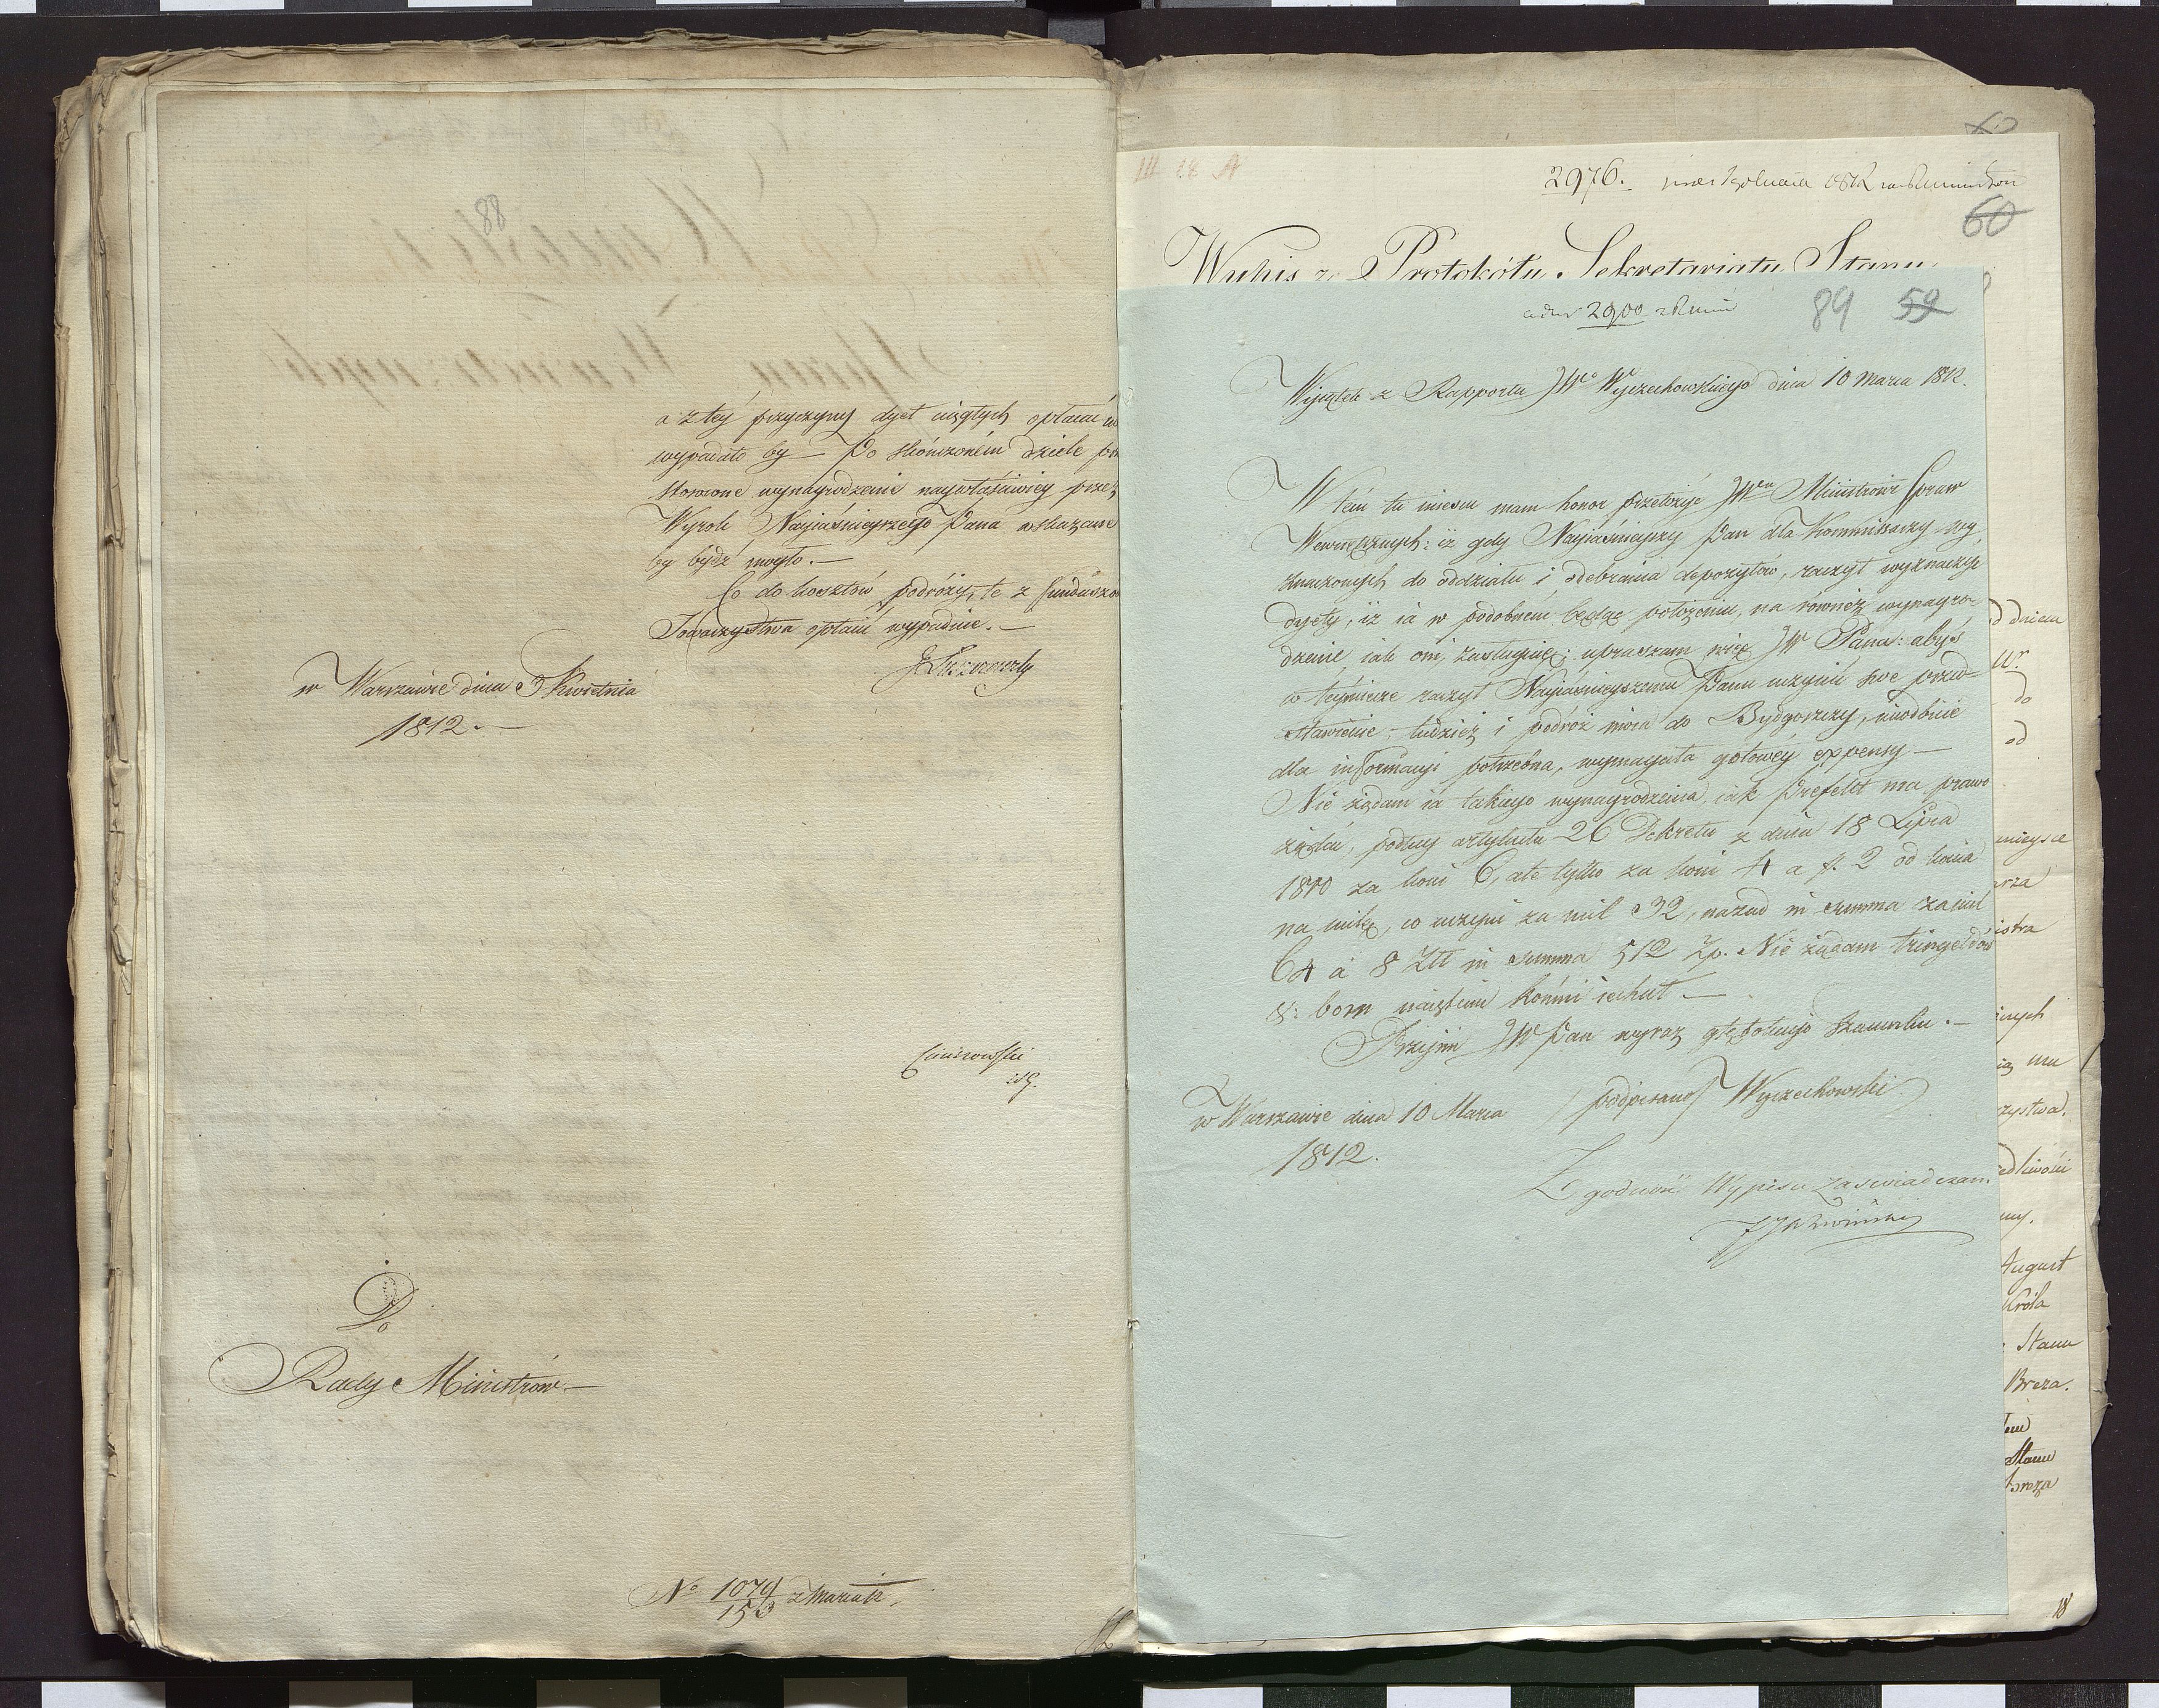 a z téy przyczyny dyet ciągłych opłacać
wypadało by — Po skończoném dziele
stosowne wynagrodzenie naywłaściwiey przez
Wyrok Nayiaśnieyszego Pana wskazane
by bydź mogło. —
Co do kosztów podróży, te z funduszów
Towarzystwa opłacić wypadnie. —
w Warszawie dnia 3 Kwietnia
1812. —
Do
Rady Ministrów —
No 1079/153 z Marca 12.
88
2976.
60
Wypis z Protokółu Sekretariatu Stanu
2900
89 59
Wyiątek z Rapportu JWo Wyczechowskiego dnia 10 Marca 1812.
W tém tu miescu mam honor przełożyć JWu Ministrowi Spraw
Wewnętrznych: iż gdy Nayiaśnieyszy Pan dla Kommissarzy wy
znaczonych do oddziału i odebrania depozytów, raczył wyznaczyć
dyety, iż ia w podobném będąc położeniu, na równéż wynagro
dzenie iak oni, zasługuię; upraszam więc JW Pana: abyś
w téymierze raczył Nayiaśnieyszemu Panu uczynić swe przed-
stawienie; tudzież i podróż moia do Bydgoszczy, nieodbicie
dla informacyi potrzebna, wymagała gotowéy expensy —
Nie żądam ia takiego wynagrodzenia, iak Prefekt ma prawo
żądać, podług artykułu 26 Dekretu z dnia 18 Lipca
1810 za koni 6, ale tylko za koni 4 a f. 2 od konia
na milę, co uczyni za mil 32, nazad in summa za mil
64 à 8 Złł in summa 512 Zp. Nie żądam tringeldów
bom naiętemi końmi iechał —
Przyimi JW Pan wyraz głębokiego szacunku. —
w Warszawie dnia 10 Marca
1812.
(podpisano) Wyczechowski
Zgodność Wypisu zaświadczam.
dniem
do
od
mieysce
mu
August
Króla
Stanu
Breza.
Stanu
Breza